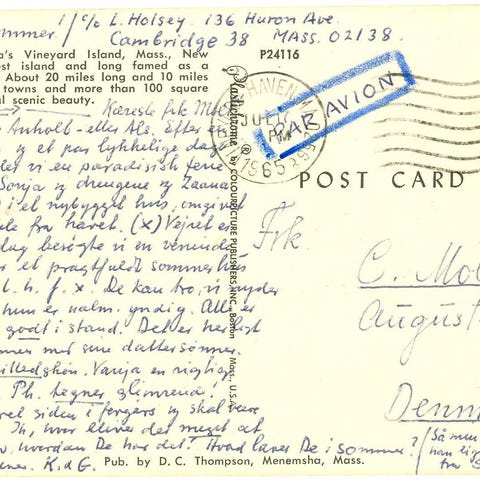 ummer / c/o L. Holsey. 136 Huron Ave.
Cambridge 38 MASS. 02138.
a's Vineyard Island, Mass., New
est island and long famed as a
About 20 miles long and 10 miles
towns and more than 100 square
al scenic beauty.
P24116
Kæreste frk Mol
Anholt - eller Als. Efter en
og et par lykkelige dage
der vi en paradisisk ferie
Sonja og drengene og Zaana
i et nybygget hus, omgivet
fra havet. (x) Vejret er
dag besøgte vi en veninde
et pragtfuldt sommerhus
l. h. f. x. De kan tro, vi nyder
hun er nalm. yndig. Alt er
godt i stand. Det er herligt
med sine dattersønner.
Vanja en rigtig
Ph. tegner glimrende!
siden i forgårs og skal være
Th, hvor bliver det meget at
hvordan De har det? Hvad laver De i sommer?
K. & G.
Pub. by D. C. Thompson, Menemsha, Mass.
Plastichrome ® by COLOURPICTURE PUBLISHERS, INC., Boston Mass., U.S.A.
HAVEN
JUL
PM
1965
PAR AVION
POST CARD
Frk.
C. Mol
August
Denm
Så mun
han lig
fra